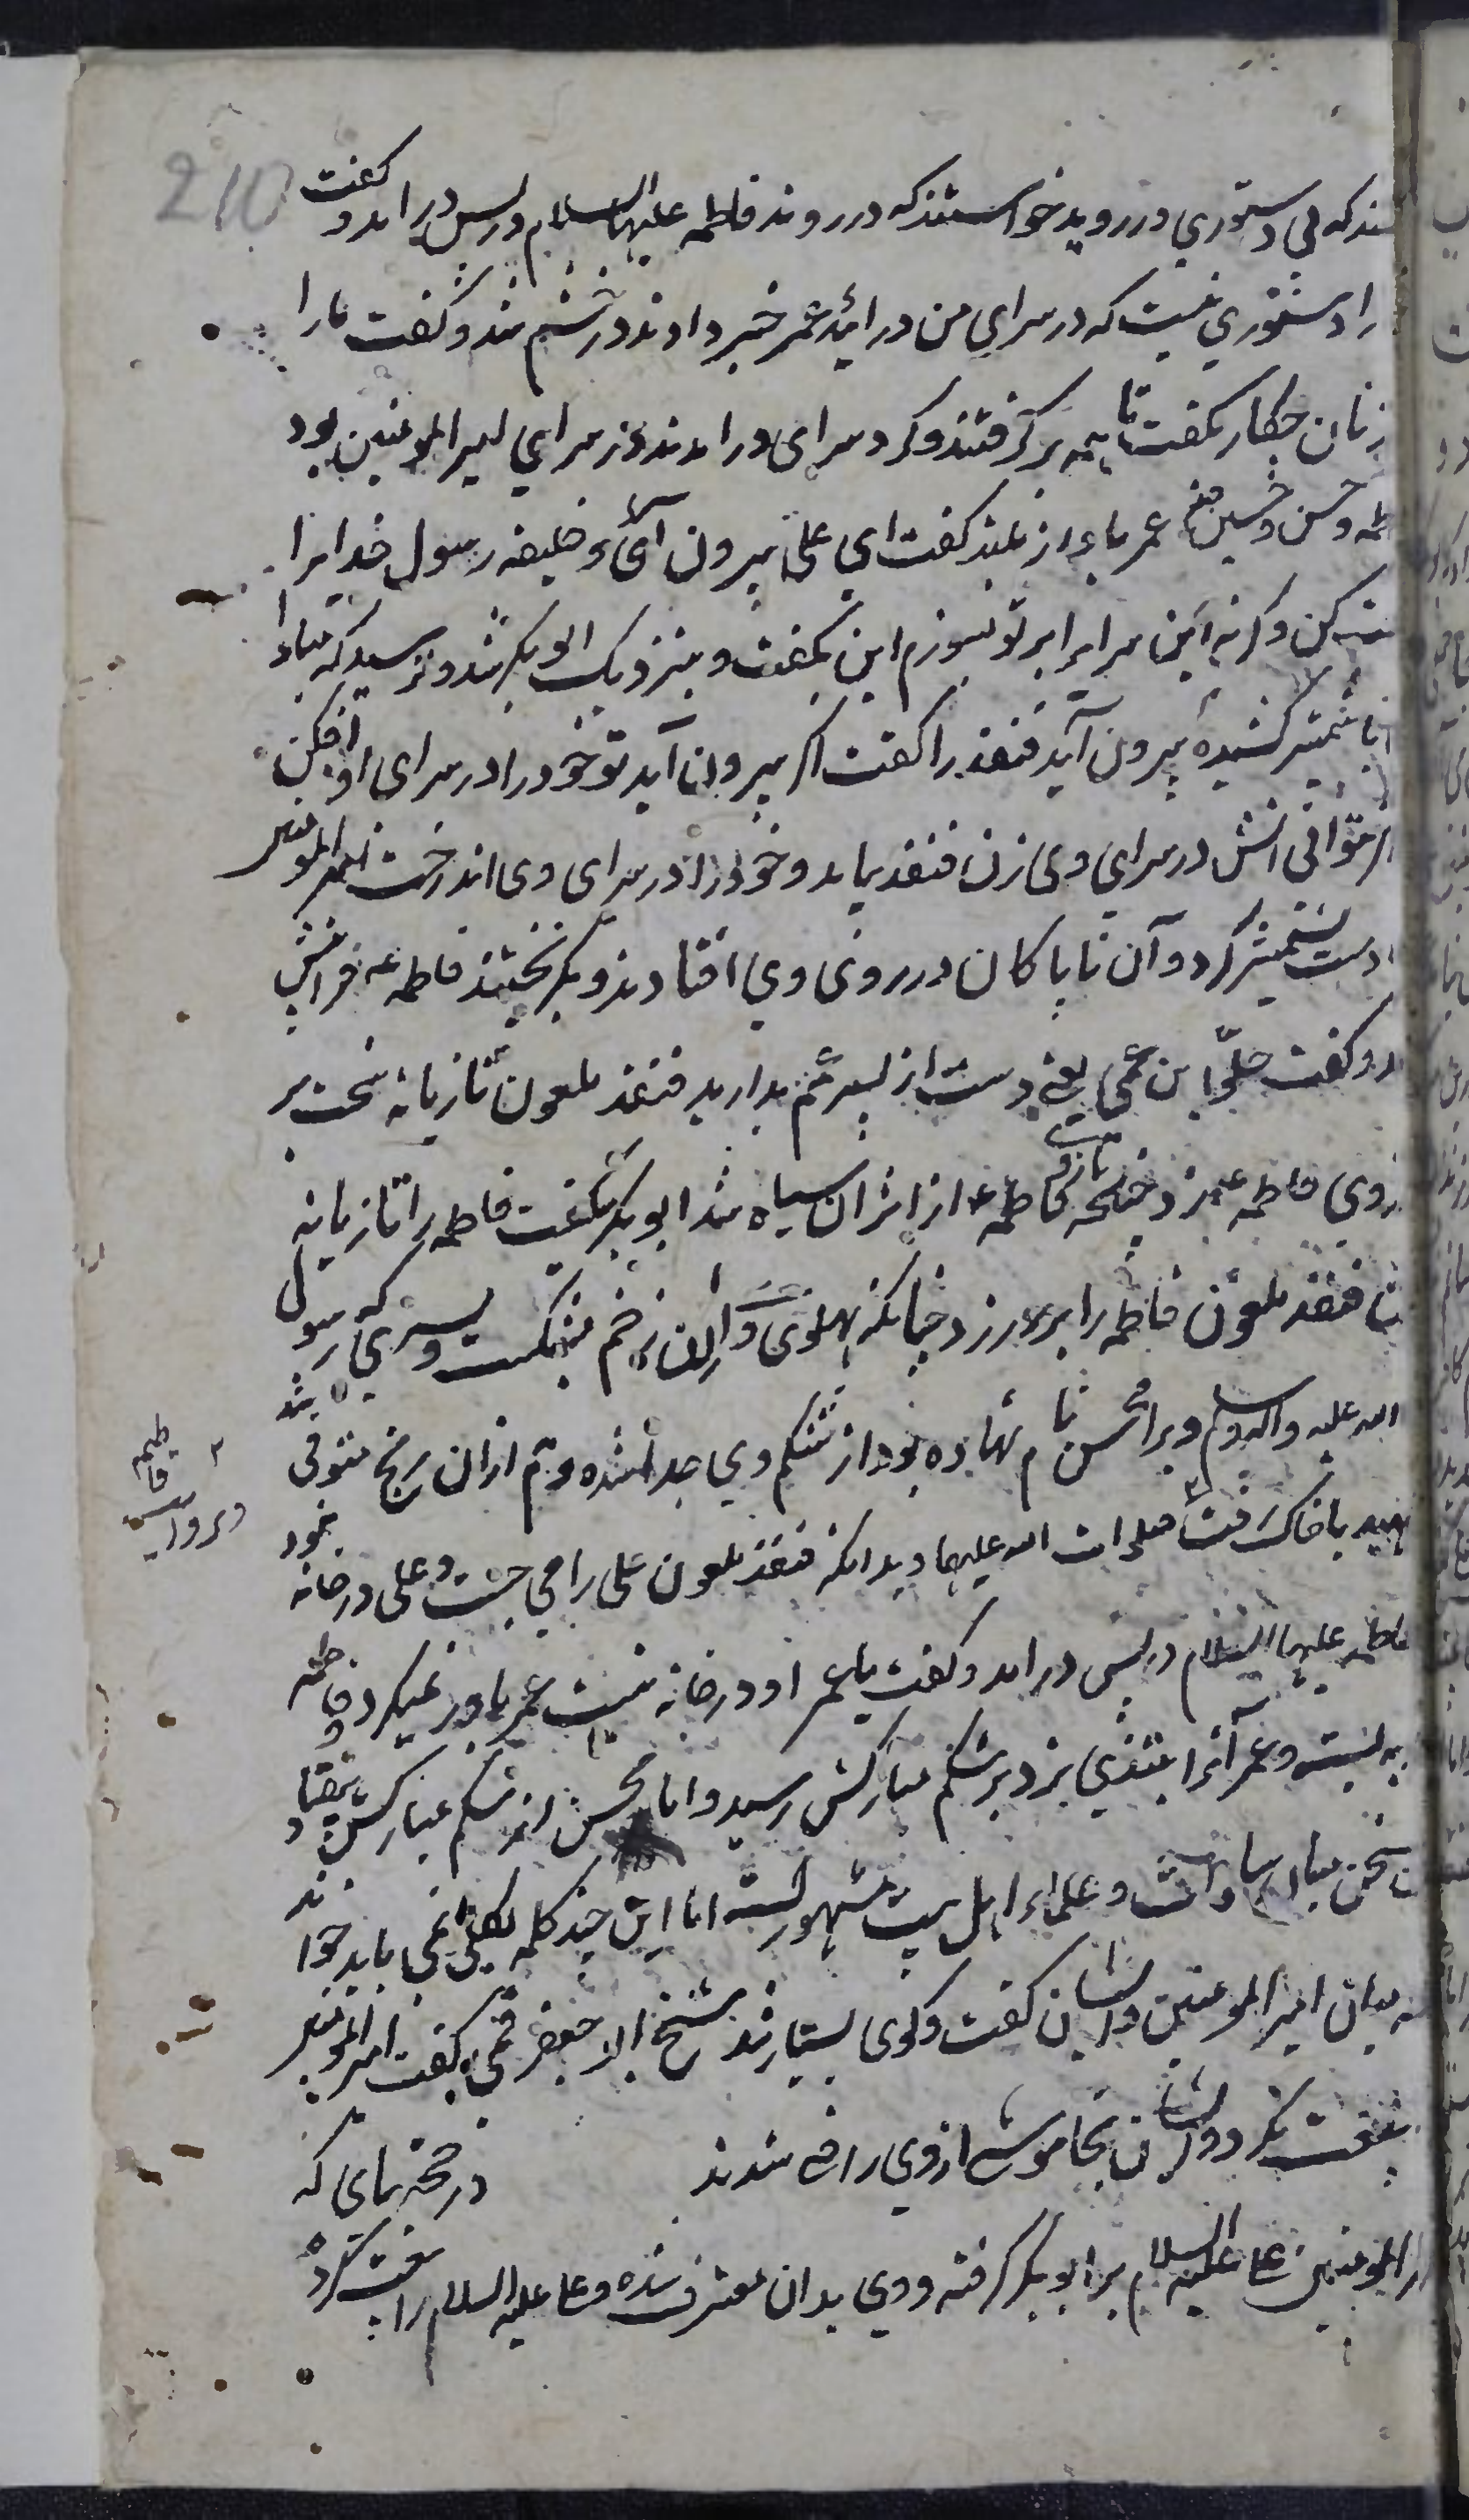 210
سند که بی دستوری در روید خواستند که در روند فاطمه علیها السلام در پس در امد و گفت
را دستوری نیست که در سرای من در ائید عمر خبر دادند در خشم شد و گفت ما را
زنان چکار بگفت تا همه بر گرفتند و گرد سرای در امدند و در سرای امیر المومنین بود
طمه و حسن و حسین عمر باواز بلند گفت ای علی بیرون آی و خلیفه رسول خدایرا
بیعت کن و گرنه این سرای را بر تو بسوزم این بگفت و بنزدیک ابوبکر شد و ترسید که مبادا
با شمشیر کشیده بیرون آید قنفذ را گفت اگر بیرون آید تو خود را در سرای او افکن
اگر نتوانی اتش در سرای وی زن قنفذ بیامد و خود را در سرای وی انداخت امیر المومنین
دست بشمشیر کرد و آن ناپاکان در روی وی افتادند و بگرفتند فاطمه ع فراپیش
امد و گفت خلّوا بن عمی یعنی دست از پسر عمم بدارید قنفذ ملعون تازیانه سخت بر
روی فاطمه ع بزد چنانچه بازوی فاطمه ع از اثر ان سیاه شد ابوبکر بگفت فاطمه را تازیانه
قنفذ ملعون فاطمه را بر در زد چنانکه پهلوی او ازان زخم بشکست و پسری که رسول
الله علیه واله وسلم ویرا محسن نام نهاده بود از شکم وی جدا شده و هم ازان رنج متوفی شد
شهید با خاک رفت صلوات الله علیها و بدانکه قنفذ ملعون علی را می جست و علی در خانه خود
و بروایت فاطمه
فاطمه علیها السلام در پس در امد و گفت یا عمر او در خانه نیست عمر باور نمیکرد و فاطمه
به بست و عمر آنرا بتندی بزد بر شکم مبارکش رسید و امام محسن از شکم مبارکش بیفتاد
سخن میان سادات و علماء اهل بیت مشهورست اما این چند کلمه می باید خواند
میان امیر المومنین و ایشان گفت و گوی بسیار شد شیخ ابو جعفر قمی گفت امیر المومنین
بیعت نکرد و ایشان بخاموشی از وی راضی شدند در حجتهای که
امیر المومنین علی علیه السلام بر ابوبکر گرفته و وی بدان معترف شده و علی علیه السلام را بیعت کرده